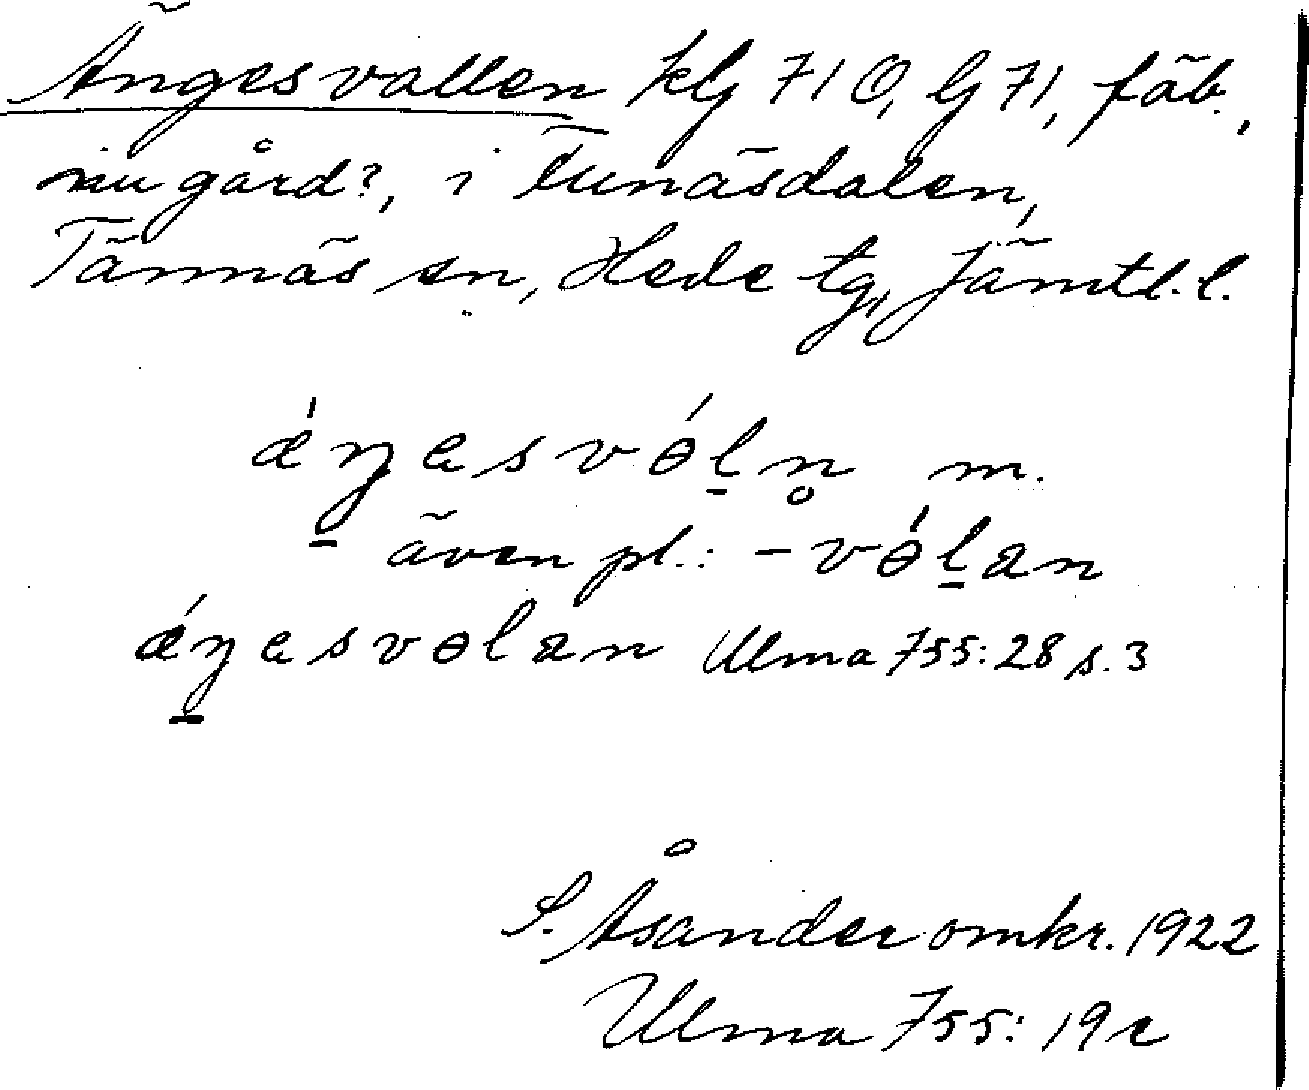 Ängesvallen klg 71 O, lg 71, fäb.,
nu gård?, i Funäsdalen,
Tännäs sn, Hede tg, Jämtl. l.
ǽŋ̠esvɵ́l̠n̥ m.
även pl.: -vɵ́l̠an
ǽŋ̠esvɵlan Ulma 755:28 s. 3
S. Åsander omkr. 1922
Ulma 755:19c